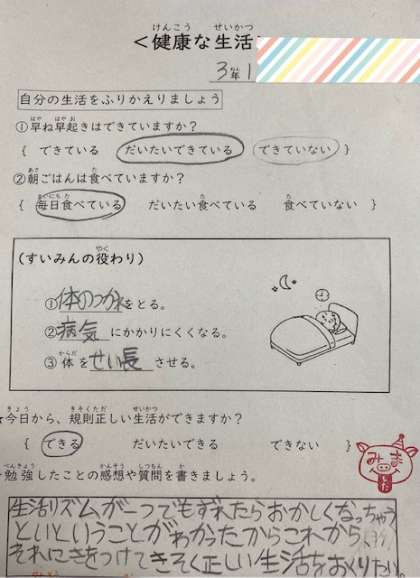 けんこう せいかつ
<健康な生活
3年1
ねん
自分の生活をふりかえりましょう
はや はやお
①早ね早起きはできていますか?
{ できている だいたいできている できていない }
あさ た
②朝ごはんは食べていますか?
まいにちた た た
{ 毎日食べている だいたい食べている 食べていない }
やく
(すいみんの役わり)
①体のつかれをとる。
②病気にかかりにくくなる。
からだ
③体をせい長させる。
きょう きそくただ せいかつ
★今日から、規則正しい生活ができますか?
{ できる だいたいできる できない }
みました
べんきょう かんそう しつもん か
勉強したことの感想や質問を書きましょう。
生活リズムが一つでもずれたらおかしくなっちゃう
といということがわかったからこれから
それにきをつけてきそく正しい生活をおくりたい。